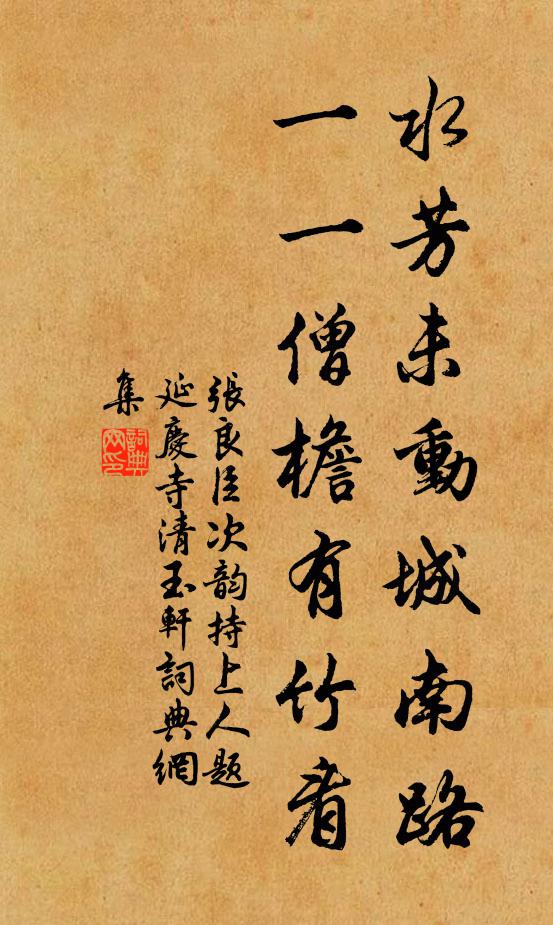 水芳未動城南路
一一僧檐有竹看
張良臣次韵持上人題
延慶寺清玉軒詞典網
集
詞典網印